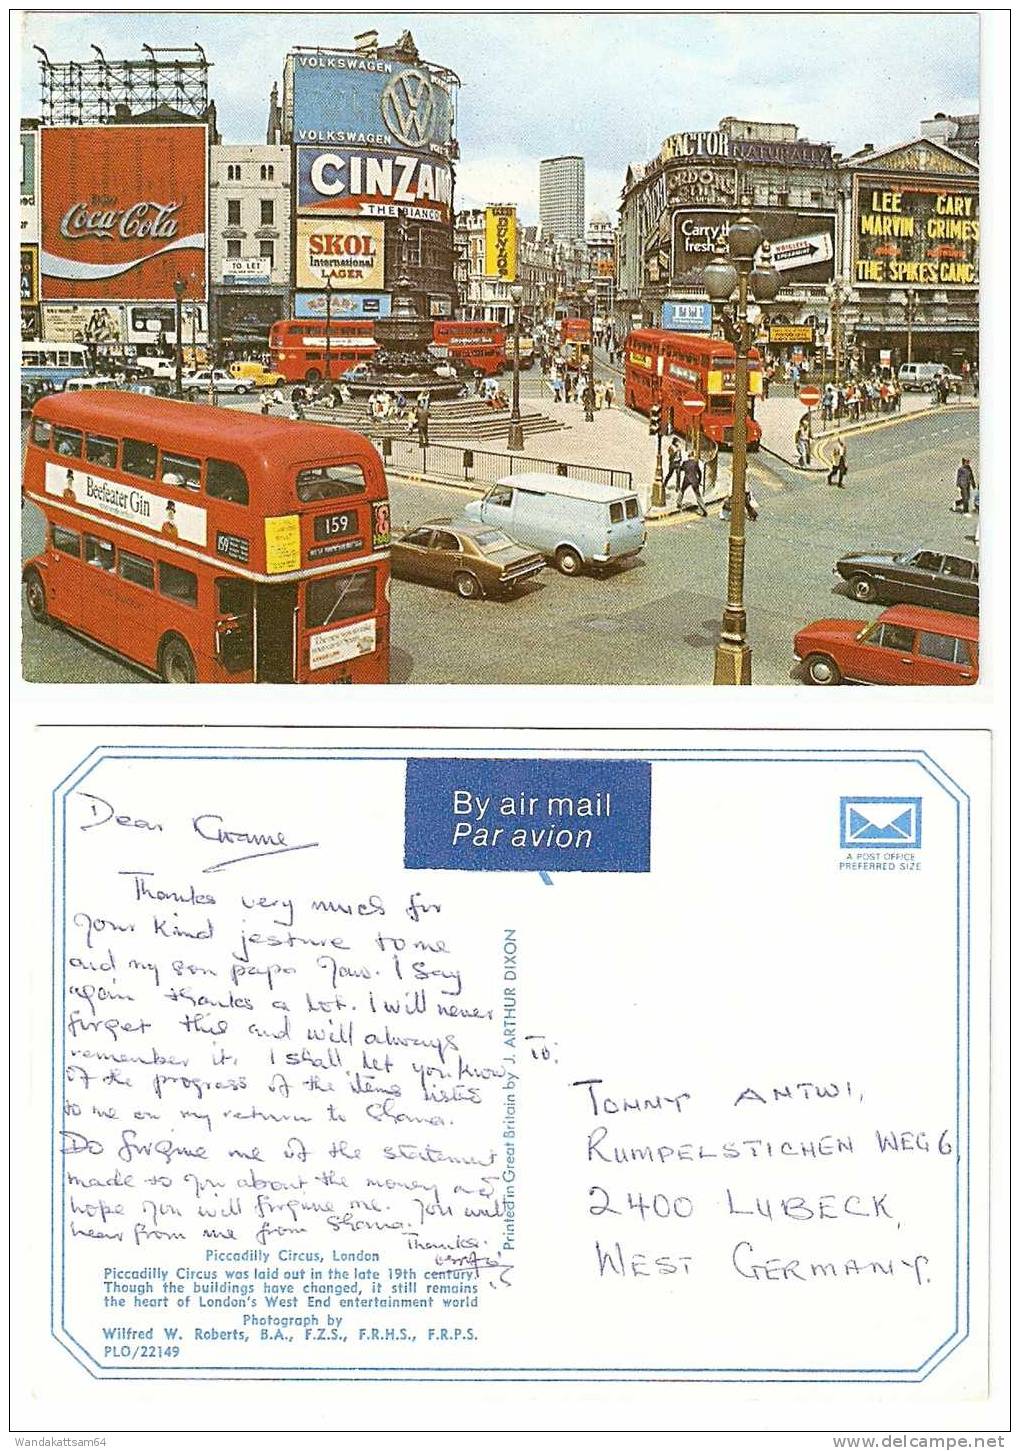 VOLKSWAGEN
VOLKSWAGEN
CINZAN
THE BIANCO
Enjoy
Coca-Cola
SKOL
International
LAGER
TO LET
FACTOR NATURALLY
GORDONS
Carry the
fresh
WRIGLEY'S
LEE CARY
MARVIN GRIMES
THE 'SPIKES' GANG
Beefeater Gin
159
159
By air mail
Par avion
A POST OFFICE
PREFERRED SIZE
Dear Kwame
Thanks very much for
your kind jesture to me
and my son papa Yaw. I say
again thanks a lot. I will never
forget this and will always
remember it. I shall let you know
of the progress of the items listed
to me on my return to Ghana.
Do forgive me of the statement
made to you about the money and
hope you will forgive me. You will
hear from me from Ghana.
Thanks.
Piccadilly Circus, London
Piccadilly Circus was laid out in the late 19th century.
Though the buildings have changed, it still remains
the heart of London's West End entertainment world
Photograph by
Wilfred W. Roberts, B.A., F.Z.S., F.R.H.S., F.R.P.S.
PLO/22149
Printed in Great Britain by J. ARTHUR DIXON
To:
TOMMY ANTWI,
RUMPELSTICHEN WEG 6,
2400 LUBECK,
WEST GERMANY.
Wandakattsam64
www.delcampe.net